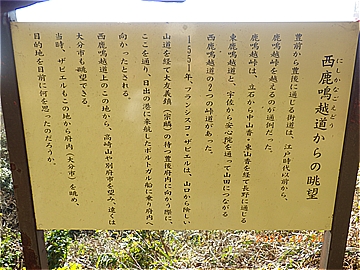 にしかなごえどう
西鹿鳴越道からの眺望
豊前から豊後に通じる街道は、江戸時代以前から、
鹿鳴越峠を越えるのが通例だった。
鹿鳴越峠は、立石から中山香・東山香を経て長野に通じる
東鹿鳴越道と、宇佐から安心院を通って山田につながる
西鹿鳴越道の2つの峠道があった。
1551年、フランシスコ・ザビエルは、山口から険しい
山道を経て大友義鎮(宗麟)の待つ豊後府内に向かう際に、
ここを通り、日出の港に来航したポルトガル船に乗り府内へ
向かったとされる。
西鹿鳴越道上のこの地から、高崎山や別府市を望み、遠くは
大分市も眺望できる。
当時、ザビエルもこの地から府内(大分市)を眺め、
目的地を目前に何を思ったのだろうか。